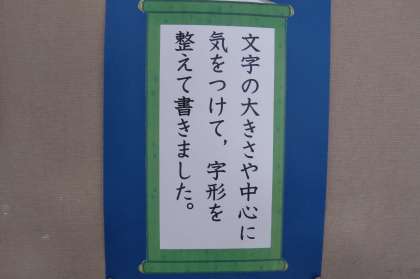 文字の大きさや中心に
気をつけて，字形を
整えて書きました。